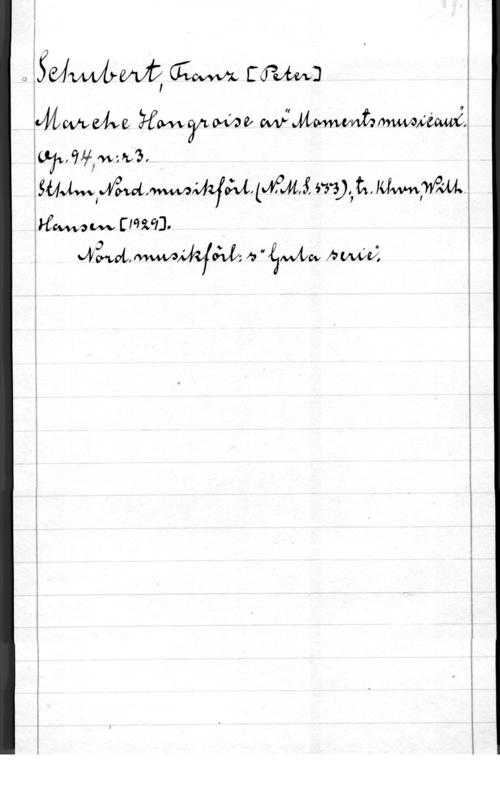 Schubert, Franz [Peter]
Marche Hongroise av "Moments musicaux".
Op. 94, n:r 3.
Sthlm, Nord. musikförl. (N.M.S. 533), tr. Khvn, Wilh.
Hansen [1929].
Nord. musikförl:s "Gula serie".